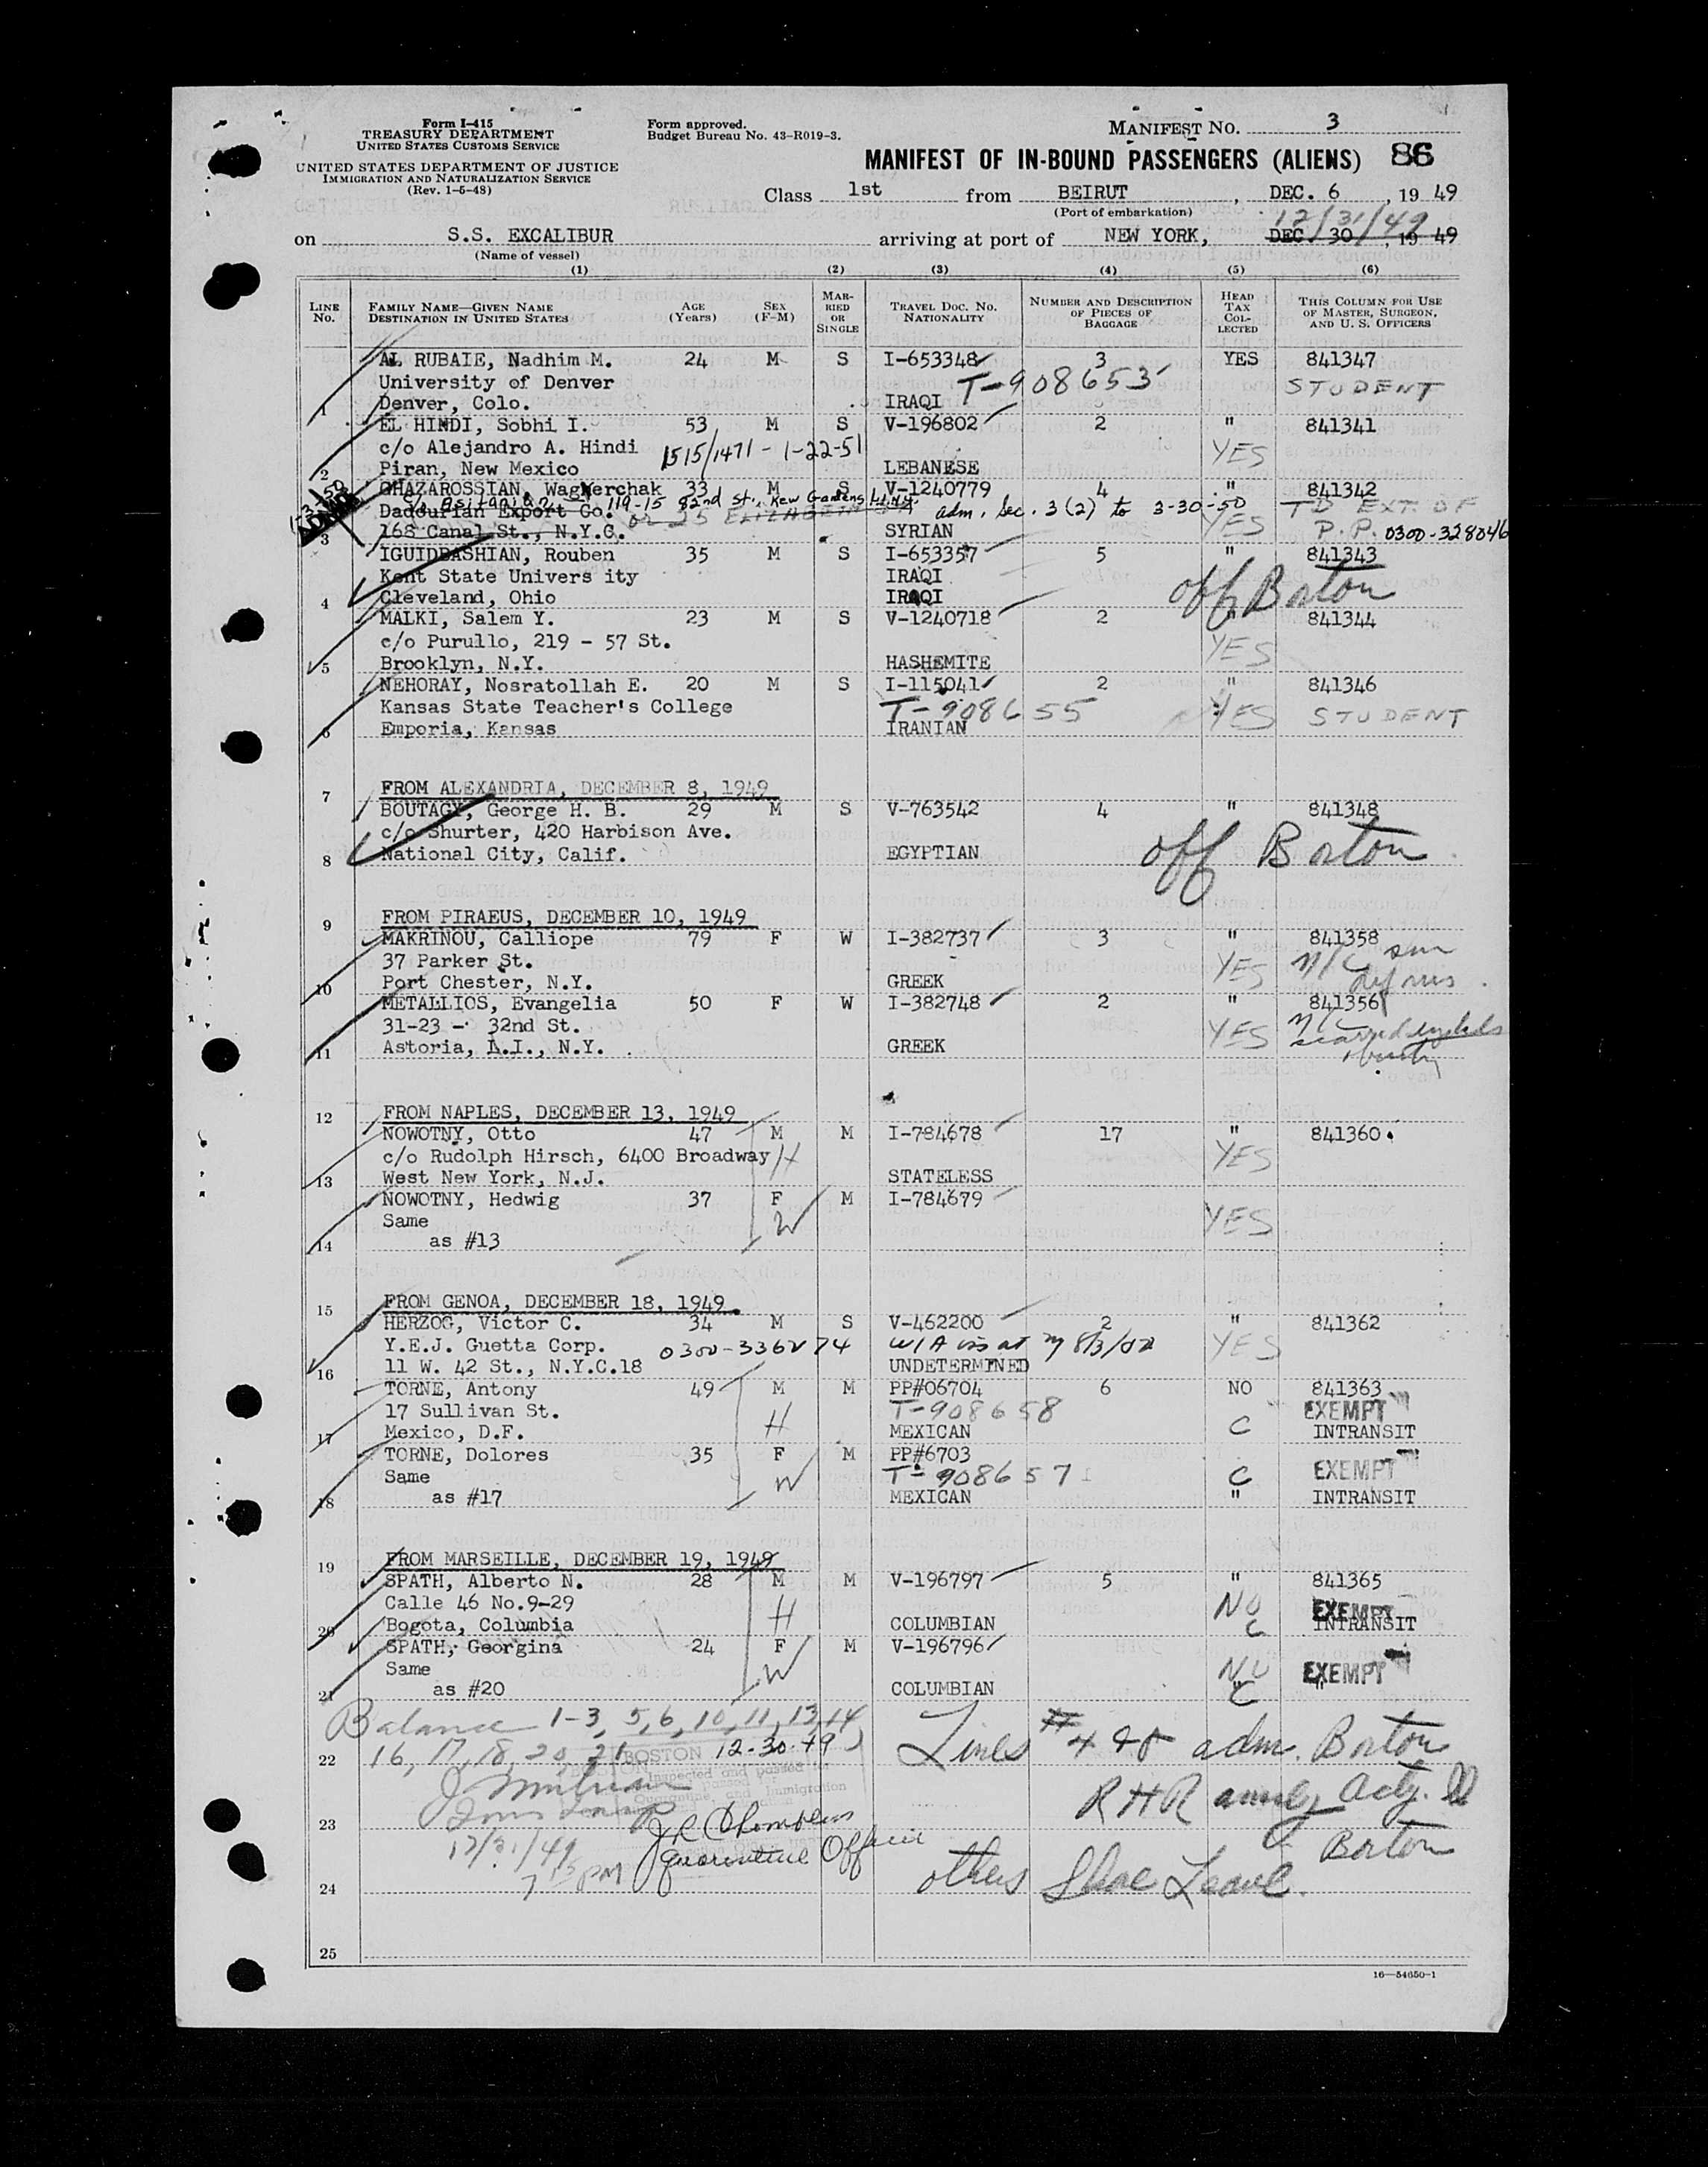 Form I-415
TREASURY DEPARTMENT
UNITED STATES CUSTOMS SERVICE
UNITED STATES DEPARTMENT OF JUSTICE
IMMIGRATION AND NATURALIZATION SERVICE
(Rev. 1-5-48)
Form approved.
Budget Bureau No. 43-R019-3.
MANIFEST NO. 3
MANIFEST OF IN-BOUND PASSENGERS (ALIENS) 86
Class 1st from BEIRUT, DEC. 6, 1949
(Port of embarkation)
12/31/49
on S.S. EXCALIBUR arriving at port of NEW YORK, DEC 30, 1949
(Name of vessel)
(1) (2) (3) (4) (5) (6)
LINE NO. FAMILY NAME—GIVEN NAME DESTINATION IN UNITED STATES AGE (Years) SEX (F-M) MARRIED OR SINGLE TRAVEL DOC. NO. NATIONALITY NUMBER AND DESCRIPTION OF PIECES OF BAGGAGE HEAD TAX COLLECTED THIS COLUMN FOR USE OF MASTER, SURGEON, AND U. S. OFFICERS
AL RUBAIE, Nadhim M. 24 M S I-653348 3 YES 841347
University of Denver T-908653 STUDENT
1 Denver, Colo. IRAQI
EL HINDI, Sobhi I. 53 M S V-196802 2 " 841341
c/o Alejandro A. Hindi 1515/1471 - 1-22-51 YES
2 Piran, New Mexico LEBANESE
GHAZAROSSIAN, Wagherchak 33 M S V-1240779 4 " 841342
119-15 82nd St., Kew Gardens L.I.N.Y.
Dadourian Export Co. or 25 ELIZABETH ST adm. Sec. 3(2) to 3-30-50 YES TD EXT. OF
1-3-50
3 168 Canal St., N.Y.C. SYRIAN P.P. 0300-328046
IGUIDBASHIAN, Rouben 35 M S I-653357 5 " 841343
Kent State Univers ity IRAQI off Boston
4 Cleveland, Ohio IRAQI
MALKI, Salem Y. 23 M S V-1240718 2 " 841344
c/o Purullo, 219 - 57 St. YES
5 Brooklyn, N.Y. HASHEMITE
NEHORAY, Nosratollah E. 20 M S I-115041 2 " 841346
Kansas State Teacher's College T-908655 YES STUDENT
6 Emporia, Kansas IRANIAN
7 FROM ALEXANDRIA, DECEMBER 8, 1949
BOUTAGY, George H. B. 29 M S V-763542 4 " 841348
c/o Shurter, 420 Harbison Ave. off Boston
8 National City, Calif. EGYPTIAN
9 FROM PIRAEUS, DECEMBER 10, 1949
MAKRINOU, Calliope 79 F W I-382737 3 " 841358
37 Parker St. YES
10 Port Chester, N.Y. GREEK
METALLIOS, Evangelia 50 F W I-382748 2 " 841356
31-23 - 32nd St. YES
11 Astoria, L.I., N.Y. GREEK
12 FROM NAPLES, DECEMBER 13, 1949
NOWOTNY, Otto 47 M M I-784678 17 " 841360
c/o Rudolph Hirsch, 6400 Broadway H YES
13 West New York, N.J. STATELESS
NOWOTNY, Hedwig 37 F M I-784679
Same W YES
14 as #13
15 FROM GENOA, DECEMBER 18, 1949
HERZOG, Victor C. 34 M S V-462200 2 " 841362
Y.E.J. Guetta Corp. 0300-336274 YES
16 11 W. 42 St., N.Y.C.18 UNDETERMINED
TORNE, Antony 49 M M PP#06704 6 NO 841363
17 Sullivan St. H T-908658 EXEMPT
17 Mexico, D.F. MEXICAN C INTRANSIT
TORNE, Dolores 35 F M PP#6703
Same W T-908657 C EXEMPT
18 as #17 MEXICAN " INTRANSIT
19 FROM MARSEILLE, DECEMBER 19, 1949
SPATH, Alberto N. 28 M M V-196797 5 " 841365
Calle 46 No.9-29 H NO EXEMPT
20 Bogota, Columbia COLUMBIAN C INTRANSIT
SPATH, Georgina 24 F M V-196796
Same W NO EXEMPT
21 as #20 COLUMBIAN C "
Balance 1-3, 5, 6, 10, 11, 13, 14 Lines #4 & 8 adm. Boston
22 16, 17, 18, 20, 21 BOSTON 12-30-49
Inspected and passed
Quarantine, and Immigration
23
12/31/49 Quarantine Officer Boston
24 PM others Shore Leave.
25
16—54650-1